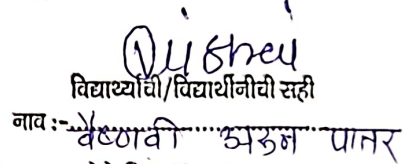 विद्यार्थ्याची/विद्यार्थीनीची सही
नाव :- वैष्णवी अरुन पातर